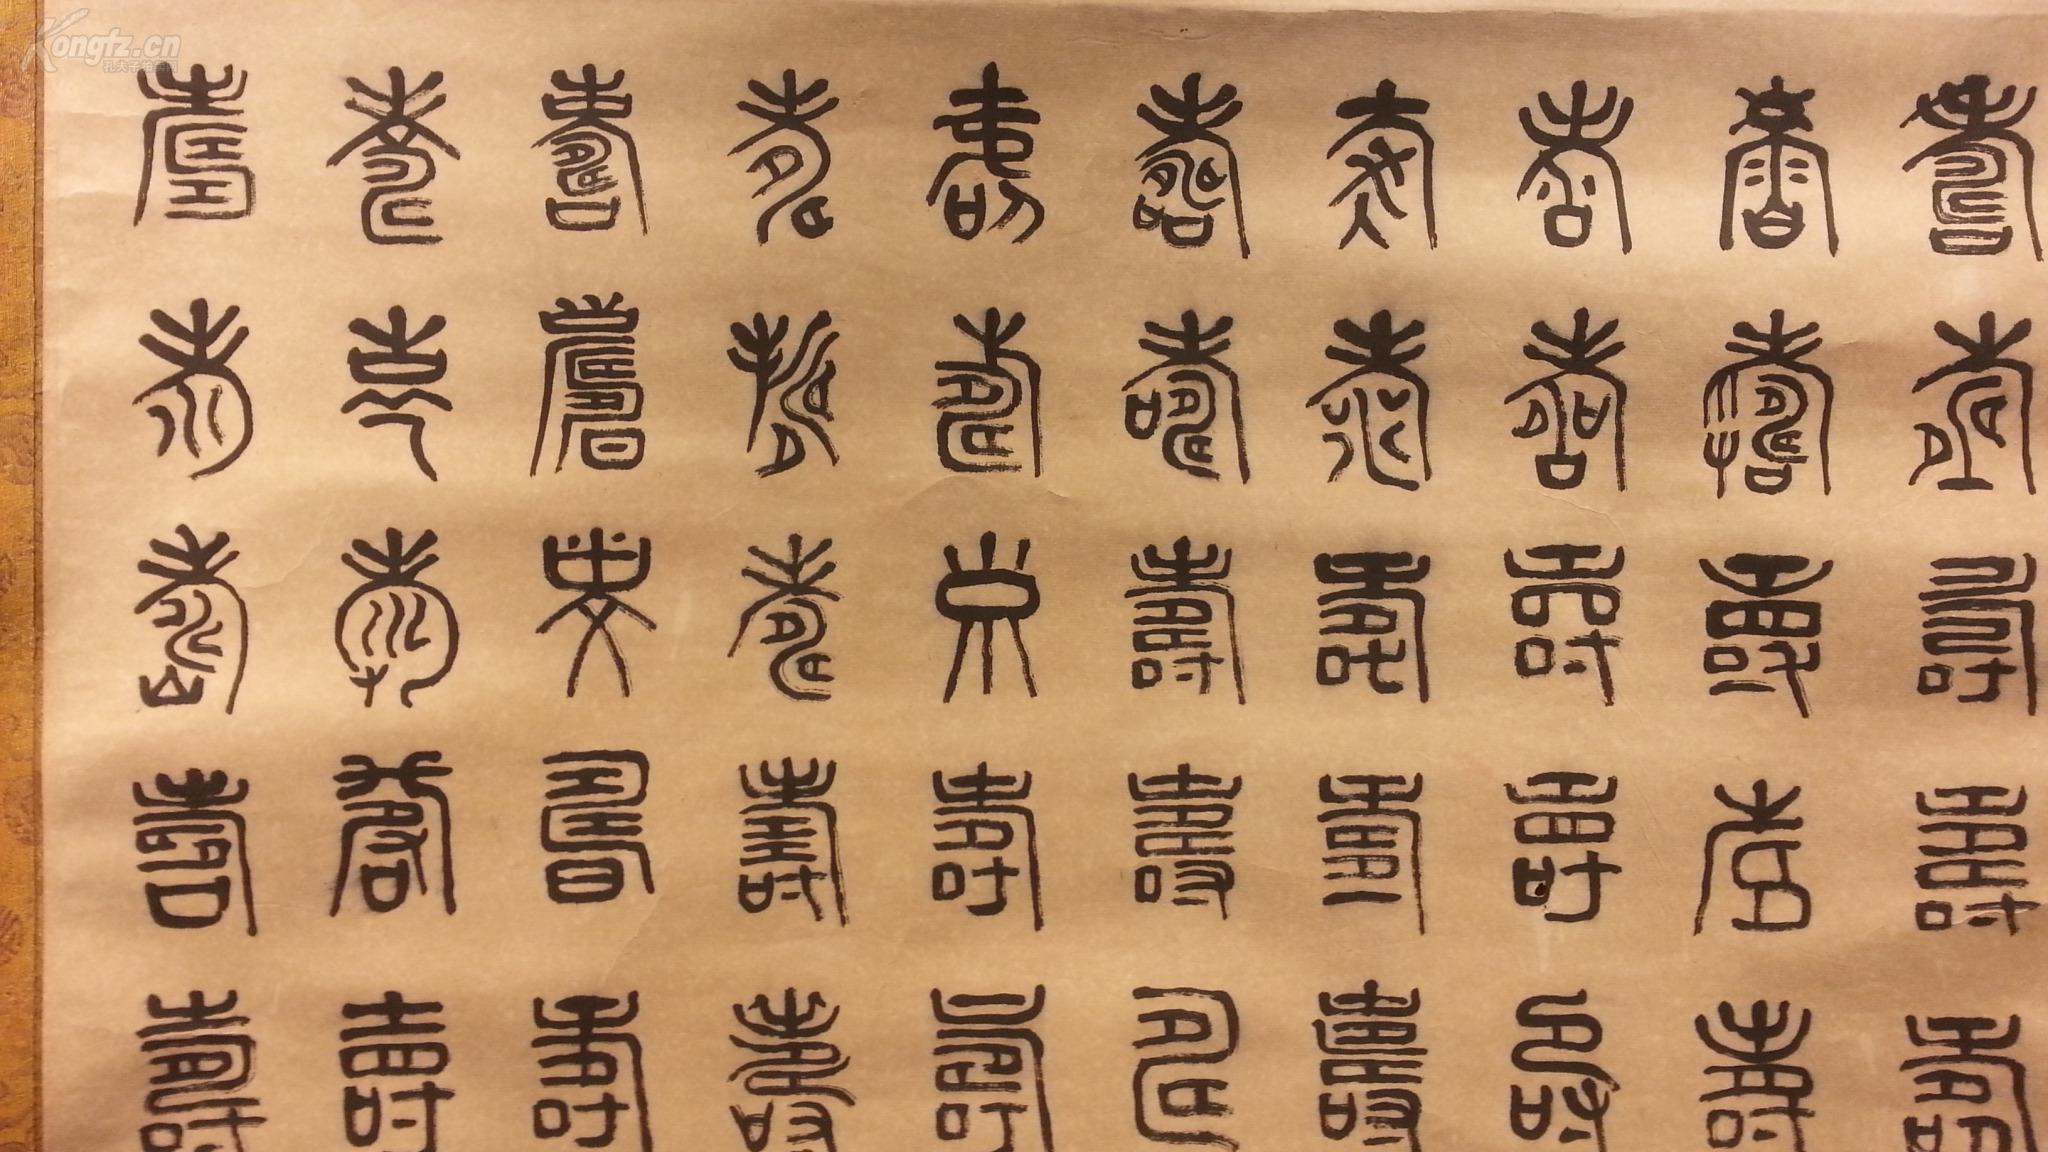 Kongfz.cn
孔夫子拍卖网
壽 壽 壽 壽 壽 壽 壽 壽 壽 壽
壽 壽 壽 壽 壽 壽 壽 壽 壽 壽
壽 壽 壽 壽 壽 壽 壽 壽 壽 壽
壽 壽 壽 壽 壽 壽 壽 壽 壽 壽
壽 壽 壽 壽 壽 壽 壽 壽 壽 壽